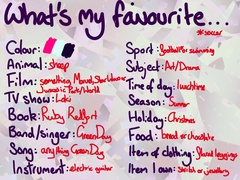 What's my favourite...
#soccer
Colour:
Animal: sheep
Film: something Marvel, Star Wars or Jurassic Park/World
TV show: Loki
Book: Ruby Redfort
Band/singer: Green Day
Song: anything Green Day
Instrument: electric guitar
Sport: football or swimming
Subject: Art/Drama
Time of day: lunchtime
Season: Summer
Holiday: Christmas
Food: bread or chocolate
Item of clothing: flared leggings
Item I own: sketch or jewellery